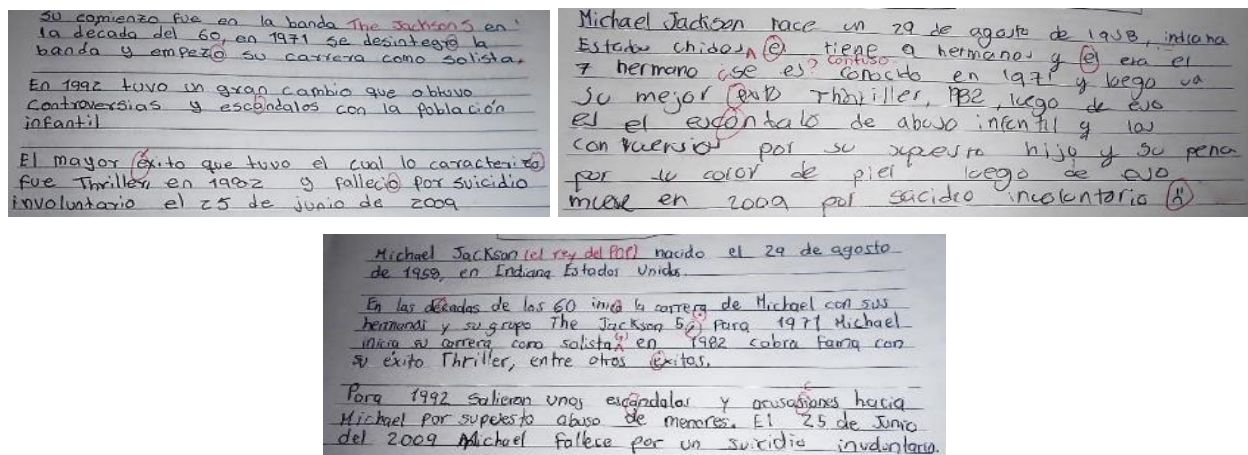 su comienzo fue en la banda The Jackson 5 en
la decada del 60, en 1971 se desintegró la
banda y empezó su carrera como solista.
En 1992 tuvo un gran cambio que obtuvo
controversias y escándalos con la población
infantil
El mayor éxito que tuvo el cual lo caracterizó
fue Thriller, en 1982 y falleció por suicidio
involuntario el 25 de junio de 2009
Michael Jackson nace un 29 de agosto de 1958, indiana
Estados chidos, él tiene 9 hermanos y él era el
7 hermano ¿se es? confuso conocido en 1971 y luego va
su mejor Thriller, 1982, luego de eso
es el escántalo de abuso infantil y las
por su supuesto hijo y su pena
por su color de piel luego de eso
muere en 2009 por suicidio involuntario
Michael Jackson (el rey del POP) nacido el 29 de agosto
de 1958, en Indiana Estados Unidos.
En las décadas de los 60 inicia la carrera de Michael con sus
hermanos y su grupo The Jackson 5, para 1971 Michael
inicia su carrera como solista y en 1982 cobra fama con
su éxito Thriller, entre otros éxitos.
Para 1992 salieron unos escándalos y acusasiones hacia
Michael por supuesto abuso de menores. El 25 de Junio
del 2009 Michael fallece por un suicidio involuntario.